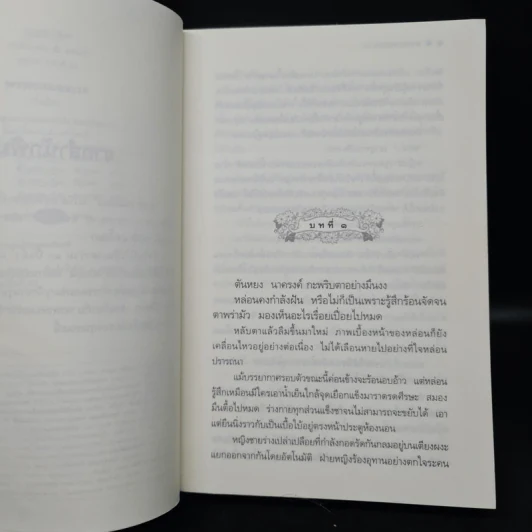 บทที่ ๑
ตันหยง นาครงค์ กะพริบตาอย่างมึนงง
หล่อนคงกำลังฝัน หรือไม่ก็เป็นเพราะรู้สึกร้อนจัดจน
ตาพร่ามัว มองเห็นอะไรเรื่อยเปื่อยไปหมด
หลับตาแล้วลืมขึ้นมาใหม่ ภาพเบื้องหน้าของหล่อนก็ยัง
เคลื่อนไหวอยู่อย่างต่อเนื่อง ไม่ได้เลือนหายไปอย่างที่ใจหล่อน
ปรารถนา
แม้บรรยากาศรอบตัวขณะนี้ค่อนข้างจะร้อนอบอ้าว แต่หล่อน
รู้สึกเหมือนมีใครเอาน้ำเย็นใกล้จุดเยือกแข็งมาราดรดศีรษะ สมอง
มึนตื้อไปหมด ร่างกายทุกส่วนแข็งชาจนไม่สามารถจะขยับได้ เอา
แต่ยืนนิ่งราวกับเป็นเบื้อใบ้อยู่ตรงหน้าประตูห้องนอน
หญิงชายร่างเปล่าเปลือยที่กำลังกอดรัดกันกลมอยู่บนเตียงผงะ
แยกออกจากกันโดยอัตโนมัติ ฝ่ายหญิงร้องอุทานอย่างตกใจระคน